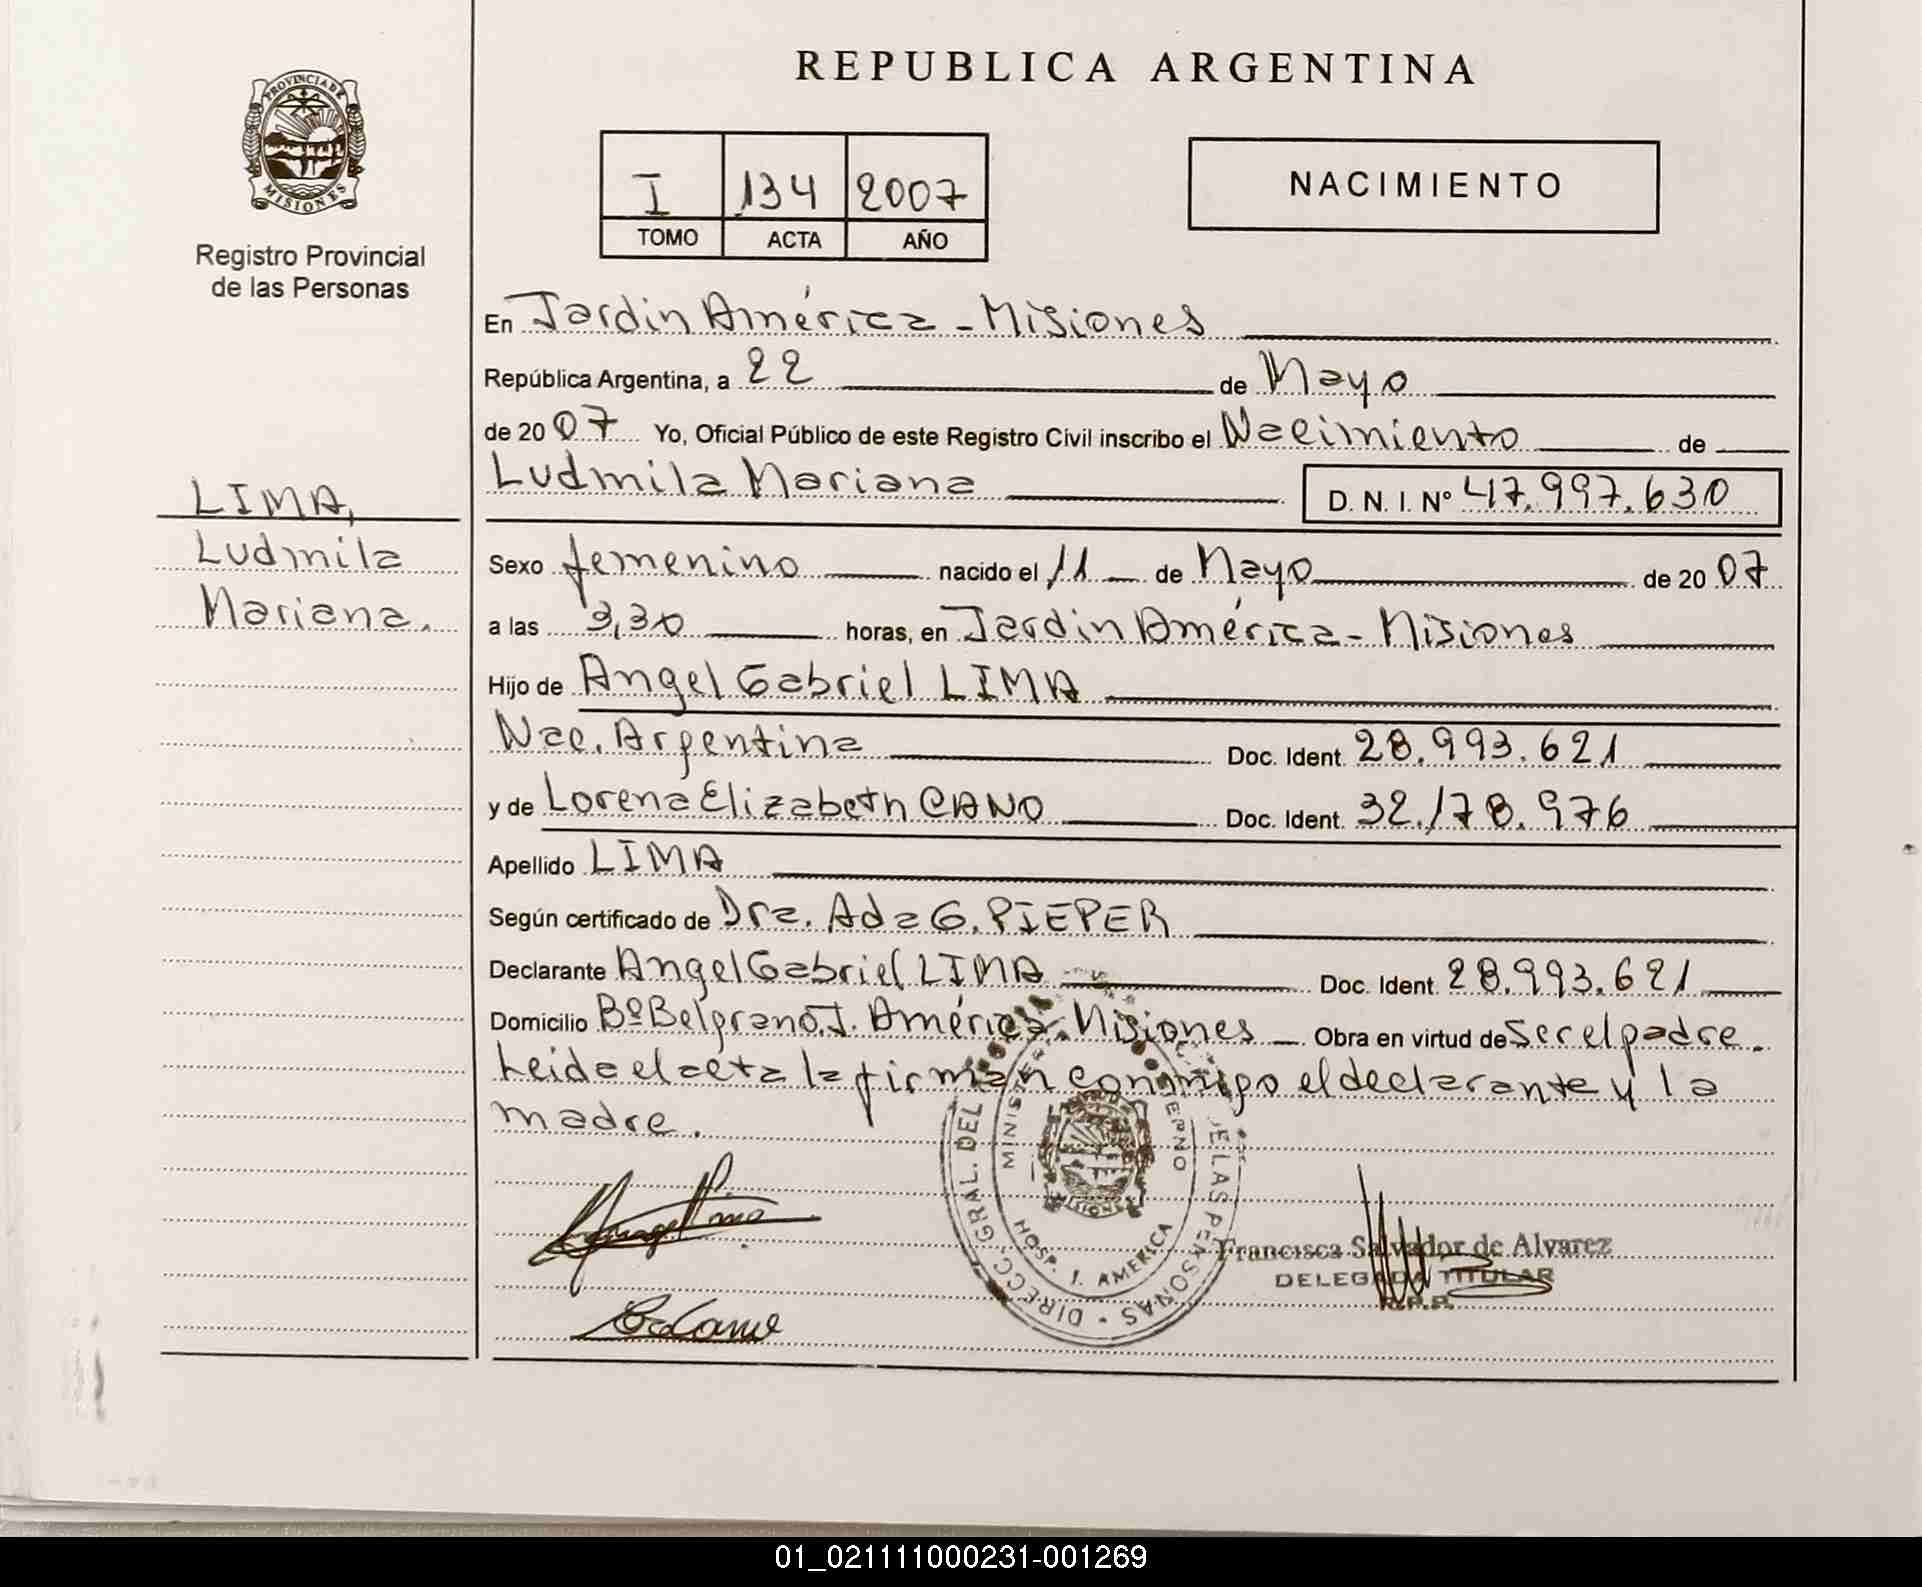 REPUBLICA ARGENTINA
PROVINCIA DE
MISIONES
Registro Provincial
de las Personas
I 134 2007
TOMO ACTA AÑO
NACIMIENTO
En Jardín América - Misiones
República Argentina, a 22 de Mayo
de 2007 Yo, Oficial Público de este Registro Civil inscribo el Nacimiento de
Ludmila Mariana D. N. I. Nº 47.997.630
LIMA,
Ludmila
Mariana.
Sexo femenino nacido el 11 de Mayo de 2007
a las 3,30 horas, en Jardín América - Misiones
Hijo de Angel Gabriel LIMA
Nac. Argentina Doc. Ident. 28.993.621
y de Lorena Elizabeth CANO Doc. Ident. 32.178.976
Apellido LIMA
Según certificado de Dra. Ada G. PIEPER
Declarante Angel Gabriel LIMA Doc. Ident. 28.993.621
Domicilio Bº Belgrano, J. América, Misiones Obra en virtud de Ser el padre.
Leida el acta la firman conmigo el declarante y la
madre.
DIRECC. GRAL. DEL DE LAS PERSONAS
HOSP. J. AMERICA
Francisca Salvador de Alvarez
DELEGADA TITULAR
R.P.P.
01_021111000231-001269